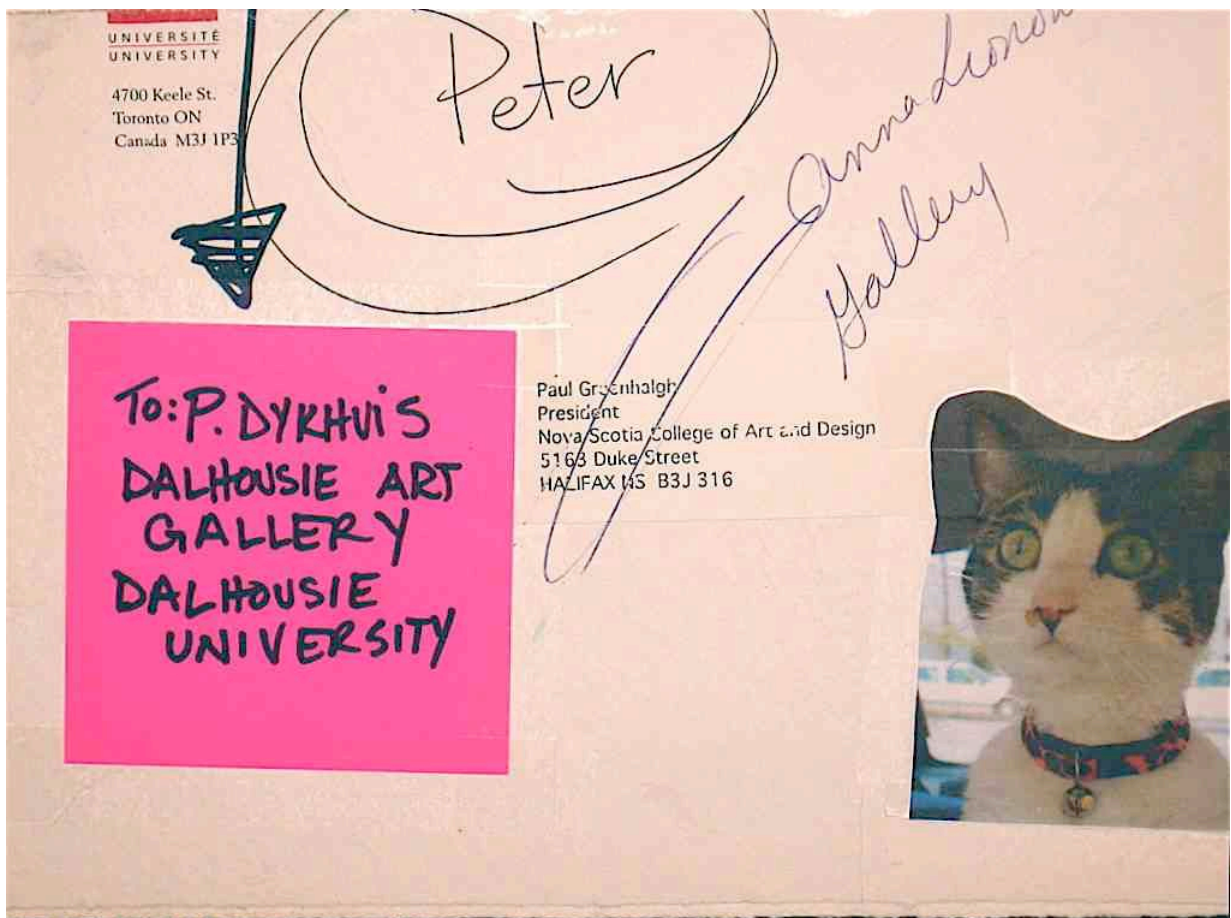 UNIVERSITÉ
UNIVERSITY
4700 Keele St.
Toronto ON
Canada M3J 1P3
Peter
Anna
Gallery
To: P. DYKHUIS
DALHOUSIE ART
GALLERY
DALHOUSIE
UNIVERSITY
Paul Greenhalgh
President
Nova Scotia College of Art and Design
5163 Duke Street
HALIFAX NS B3J 316